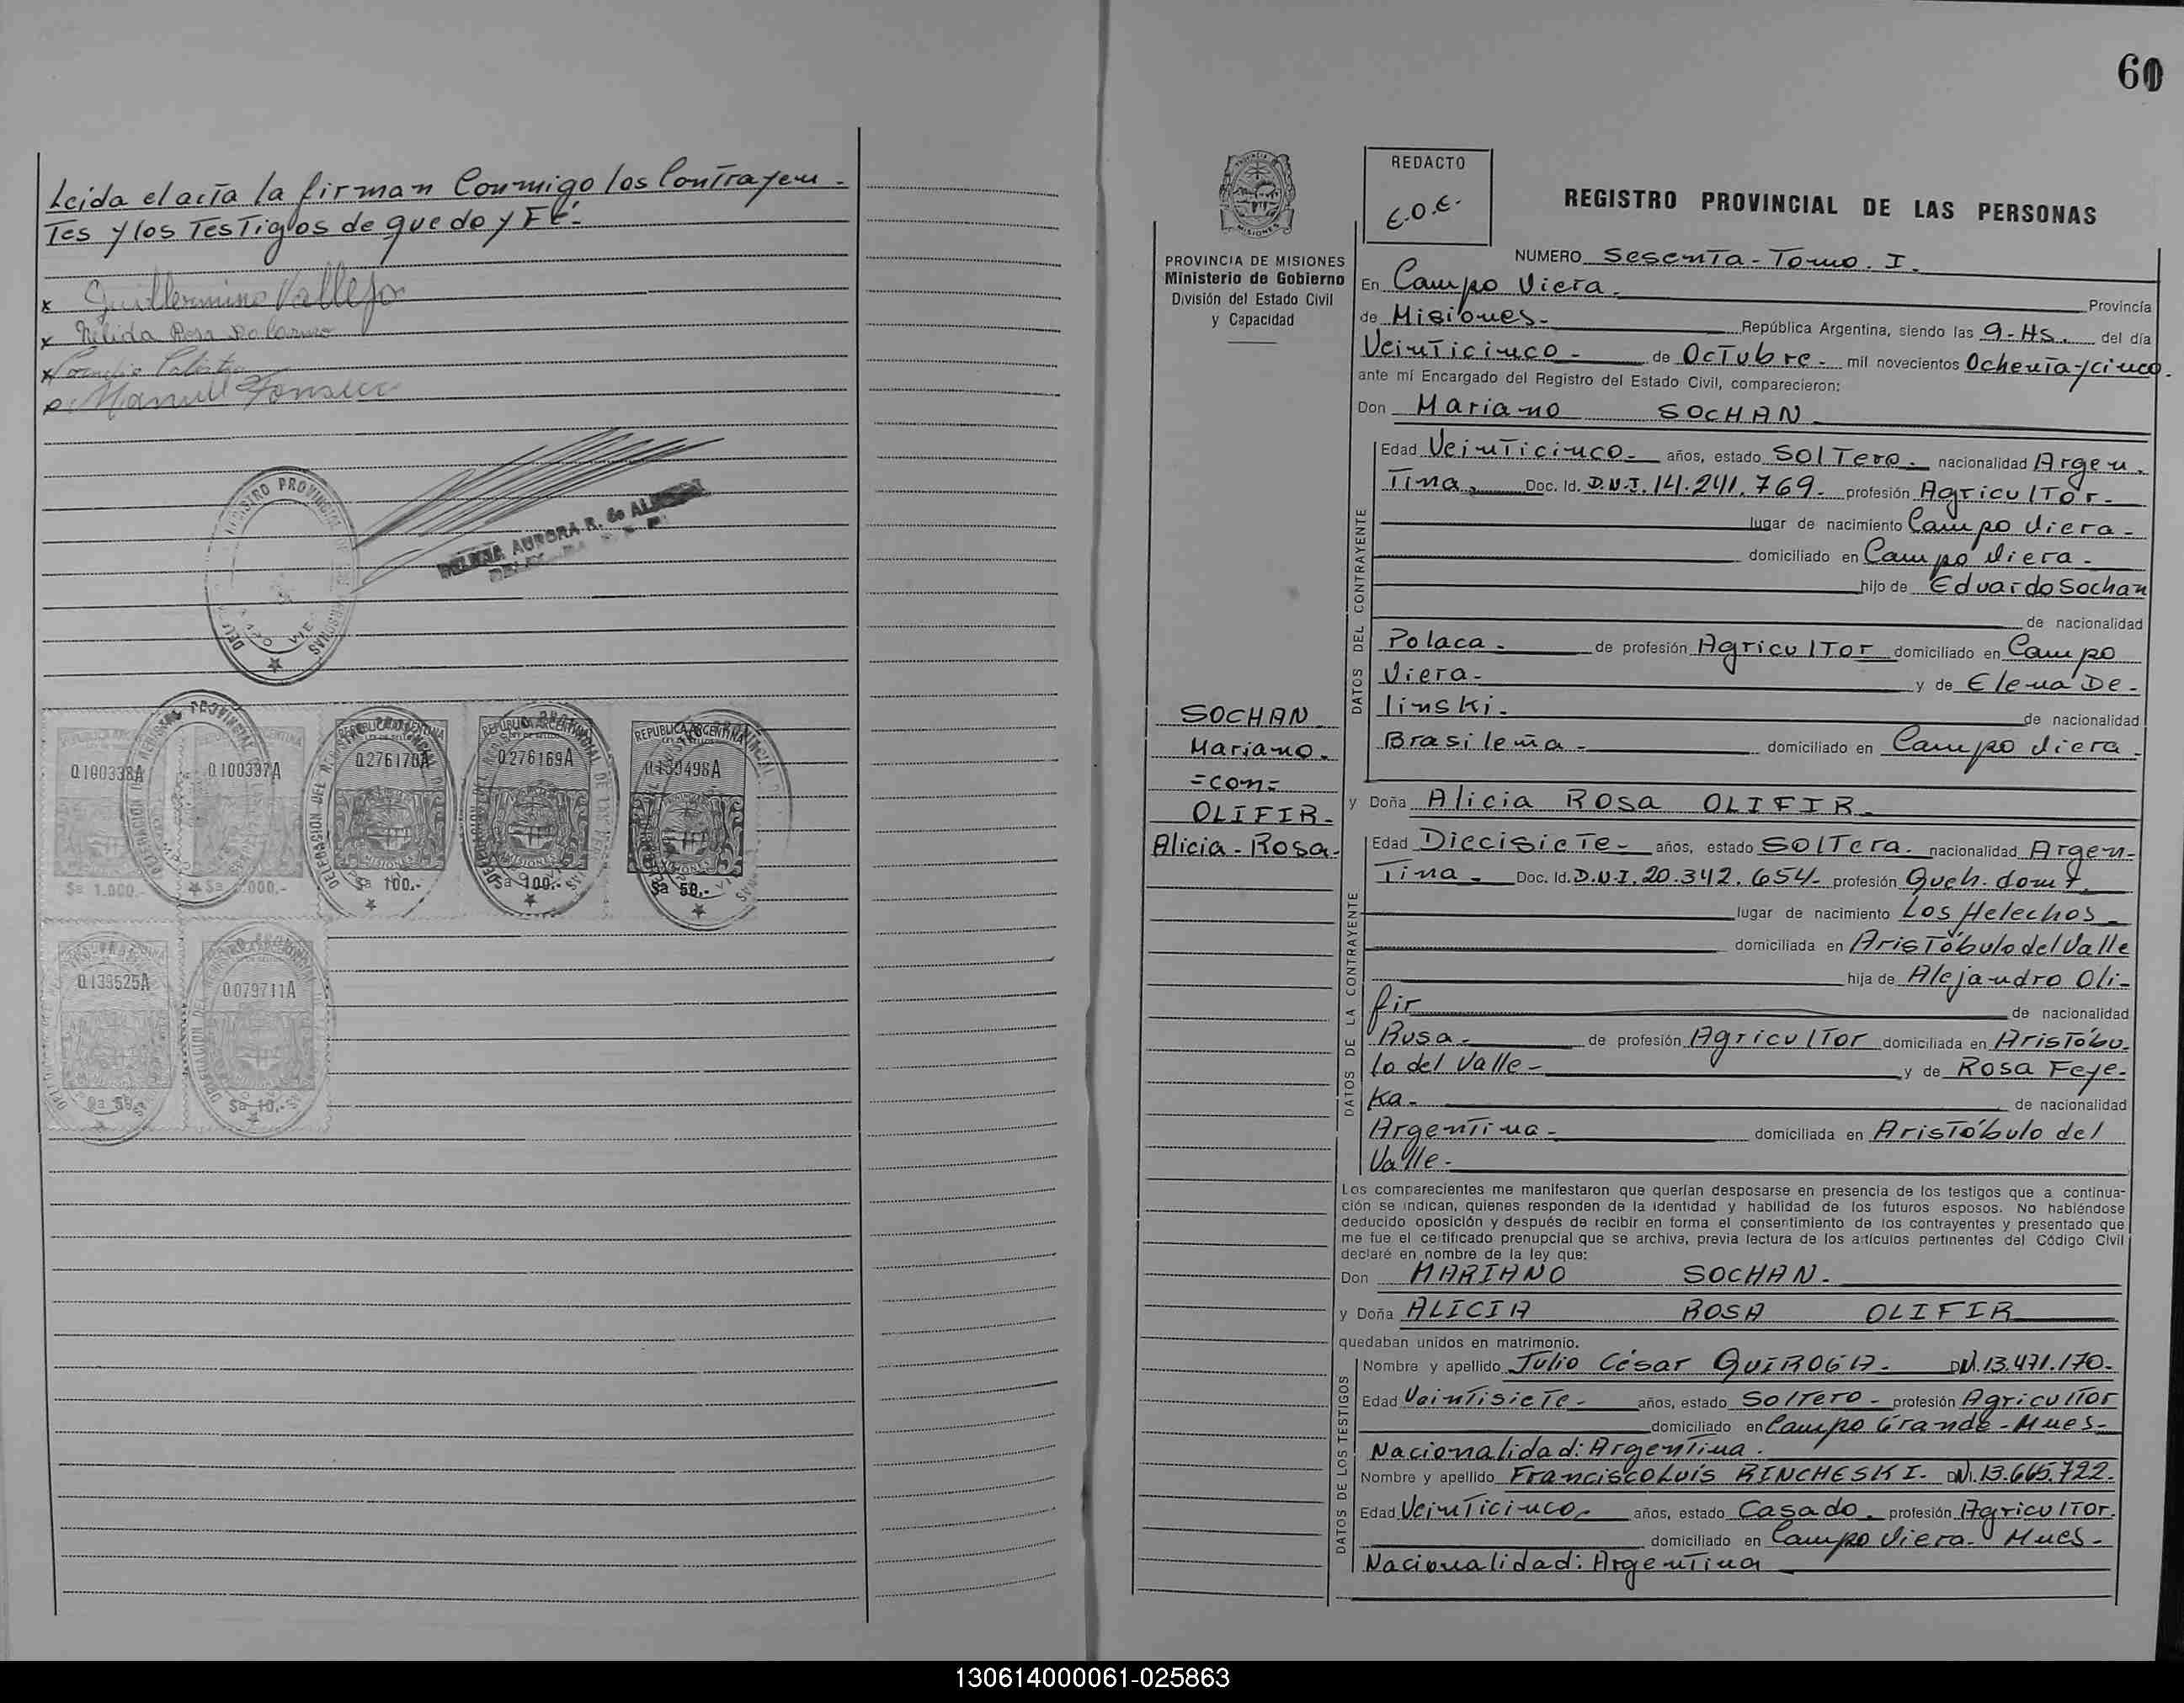 Leida el acta la firman Conmigo los Contrayen-
tes y los Testigos de que doy Fé.-
x Guillermino Vallejo
x Nélida Rosa
x
Manuel Fonseca
0.100338A
0.100337A
0.276170A
0.276169A
0.139498A
$a 1.000.-
$a 100.-
$a 100.-
$a 50.-
0.139525A
0.079711A
$a 10.-
60
REDACTO
E.O.E.
REGISTRO PROVINCIAL DE LAS PERSONAS
PROVINCIA DE MISIONES
Ministerio de Gobierno
División del Estado Civil
y Capacidad
NUMERO Sesenta - Tomo. I.
En Campo Viera. Provincia
de Misiones- República Argentina, siendo las 9-Hs. del día
Veinticinco - de Octubre - mil novecientos Ochenta y cinco.
ante mí Encargado del Registro del Estado Civil, comparecieron:
Don Mariano SOCHAN
DATOS DEL CONTRAYENTE
Edad Veinticinco- años, estado Soltero. nacionalidad Argen-
tina. Doc. Id. D.N.I. 14.241.769- profesión Agricultor-
lugar de nacimiento Campo Viera-
domiciliado en Campo Viera-
hijo de Eduardo Sochan
de nacionalidad
Polaca- de profesión Agricultor domiciliado en Campo
Viera- y de Elena De-
linski- de nacionalidad
Brasileña- domiciliado en Campo Viera-
SOCHAN
Mariano-
=con=
OLIFIR-
Alicia-Rosa-
y Doña Alicia Rosa OLIFIR-
DATOS DE LA CONTRAYENTE
Edad Diecisiete- años, estado Soltera. nacionalidad Argen-
tina. Doc. Id. D.N.I. 20.342.654- profesión Queh. domt.
lugar de nacimiento Los Helechos-
domiciliada en Aristóbulo del Valle
hija de Alejandro Oli-
fir de nacionalidad
Rusa- de profesión Agricultor domiciliada en Aristóbu-
lo del Valle- y de Rosa Feye-
ka- de nacionalidad
Argentina- domiciliada en Aristóbulo del
Valle-
Los comparecientes me manifestaron que querían desposarse en presencia de los testigos que a continua-
ción se indican, quienes responden de la identidad y habilidad de los futuros esposos. No habiéndose
deducido oposición y después de recibir en forma el consentimiento de los contrayentes y presentado que
me fue el certificado prenupcial que se archiva, previa lectura de los artículos pertinentes del Código Civil
declaré en nombre de la ley que:
Don MARIANO SOCHAN-
y Doña ALICIA ROSA OLIFIR
quedaban unidos en matrimonio.
DATOS DE LOS TESTIGOS
Nombre y apellido Julio César QUIROGA- DNI. 13.471.170-
Edad Veintisiete- años, estado Soltero- profesión Agricultor
domiciliado en Campo Grande-Mnes-
Nacionalidad: Argentina.
Nombre y apellido Francisco Luis RINCHESKI- DNI. 13.665.722.
Edad Veinticinco- años, estado Casado. profesión Agricultor.
domiciliado en Campo Viera- Mnes-
Nacionalidad: Argentina
130614000061-025863